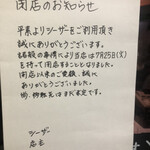 閉店のお知らせ
平素よりシーザーをご利用頂き
誠にありがとうございます。
諸般の事情により当店は7月25日(火)
を持て閉店することとなりました。
閉店以来のご愛顧、誠に
ありがとうございました。
尚、移転先はまだ未定です。
シーザー
店主